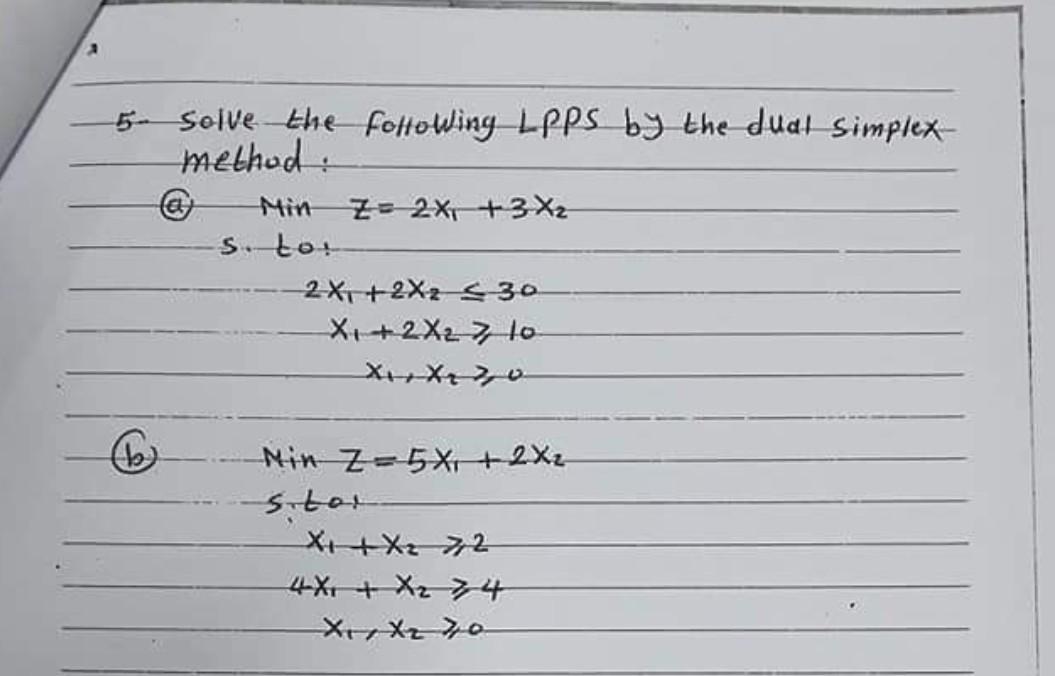 5- Solve the following LPPS by the dual simplex
method:
ⓐ Min Z = 2X₁ + 3X₂
S. to:
2X₁ + 2X₂ ≤ 30
X₁ + 2X₂ ≥ 10
X₁, X₂ ≥ 0
ⓑ Min Z = 5X₁ + 2X₂
S. to:
X₁ + X₂ ≥ 2
4X₁ + X₂ ≥ 4
X₁, X₂ ≥ 0